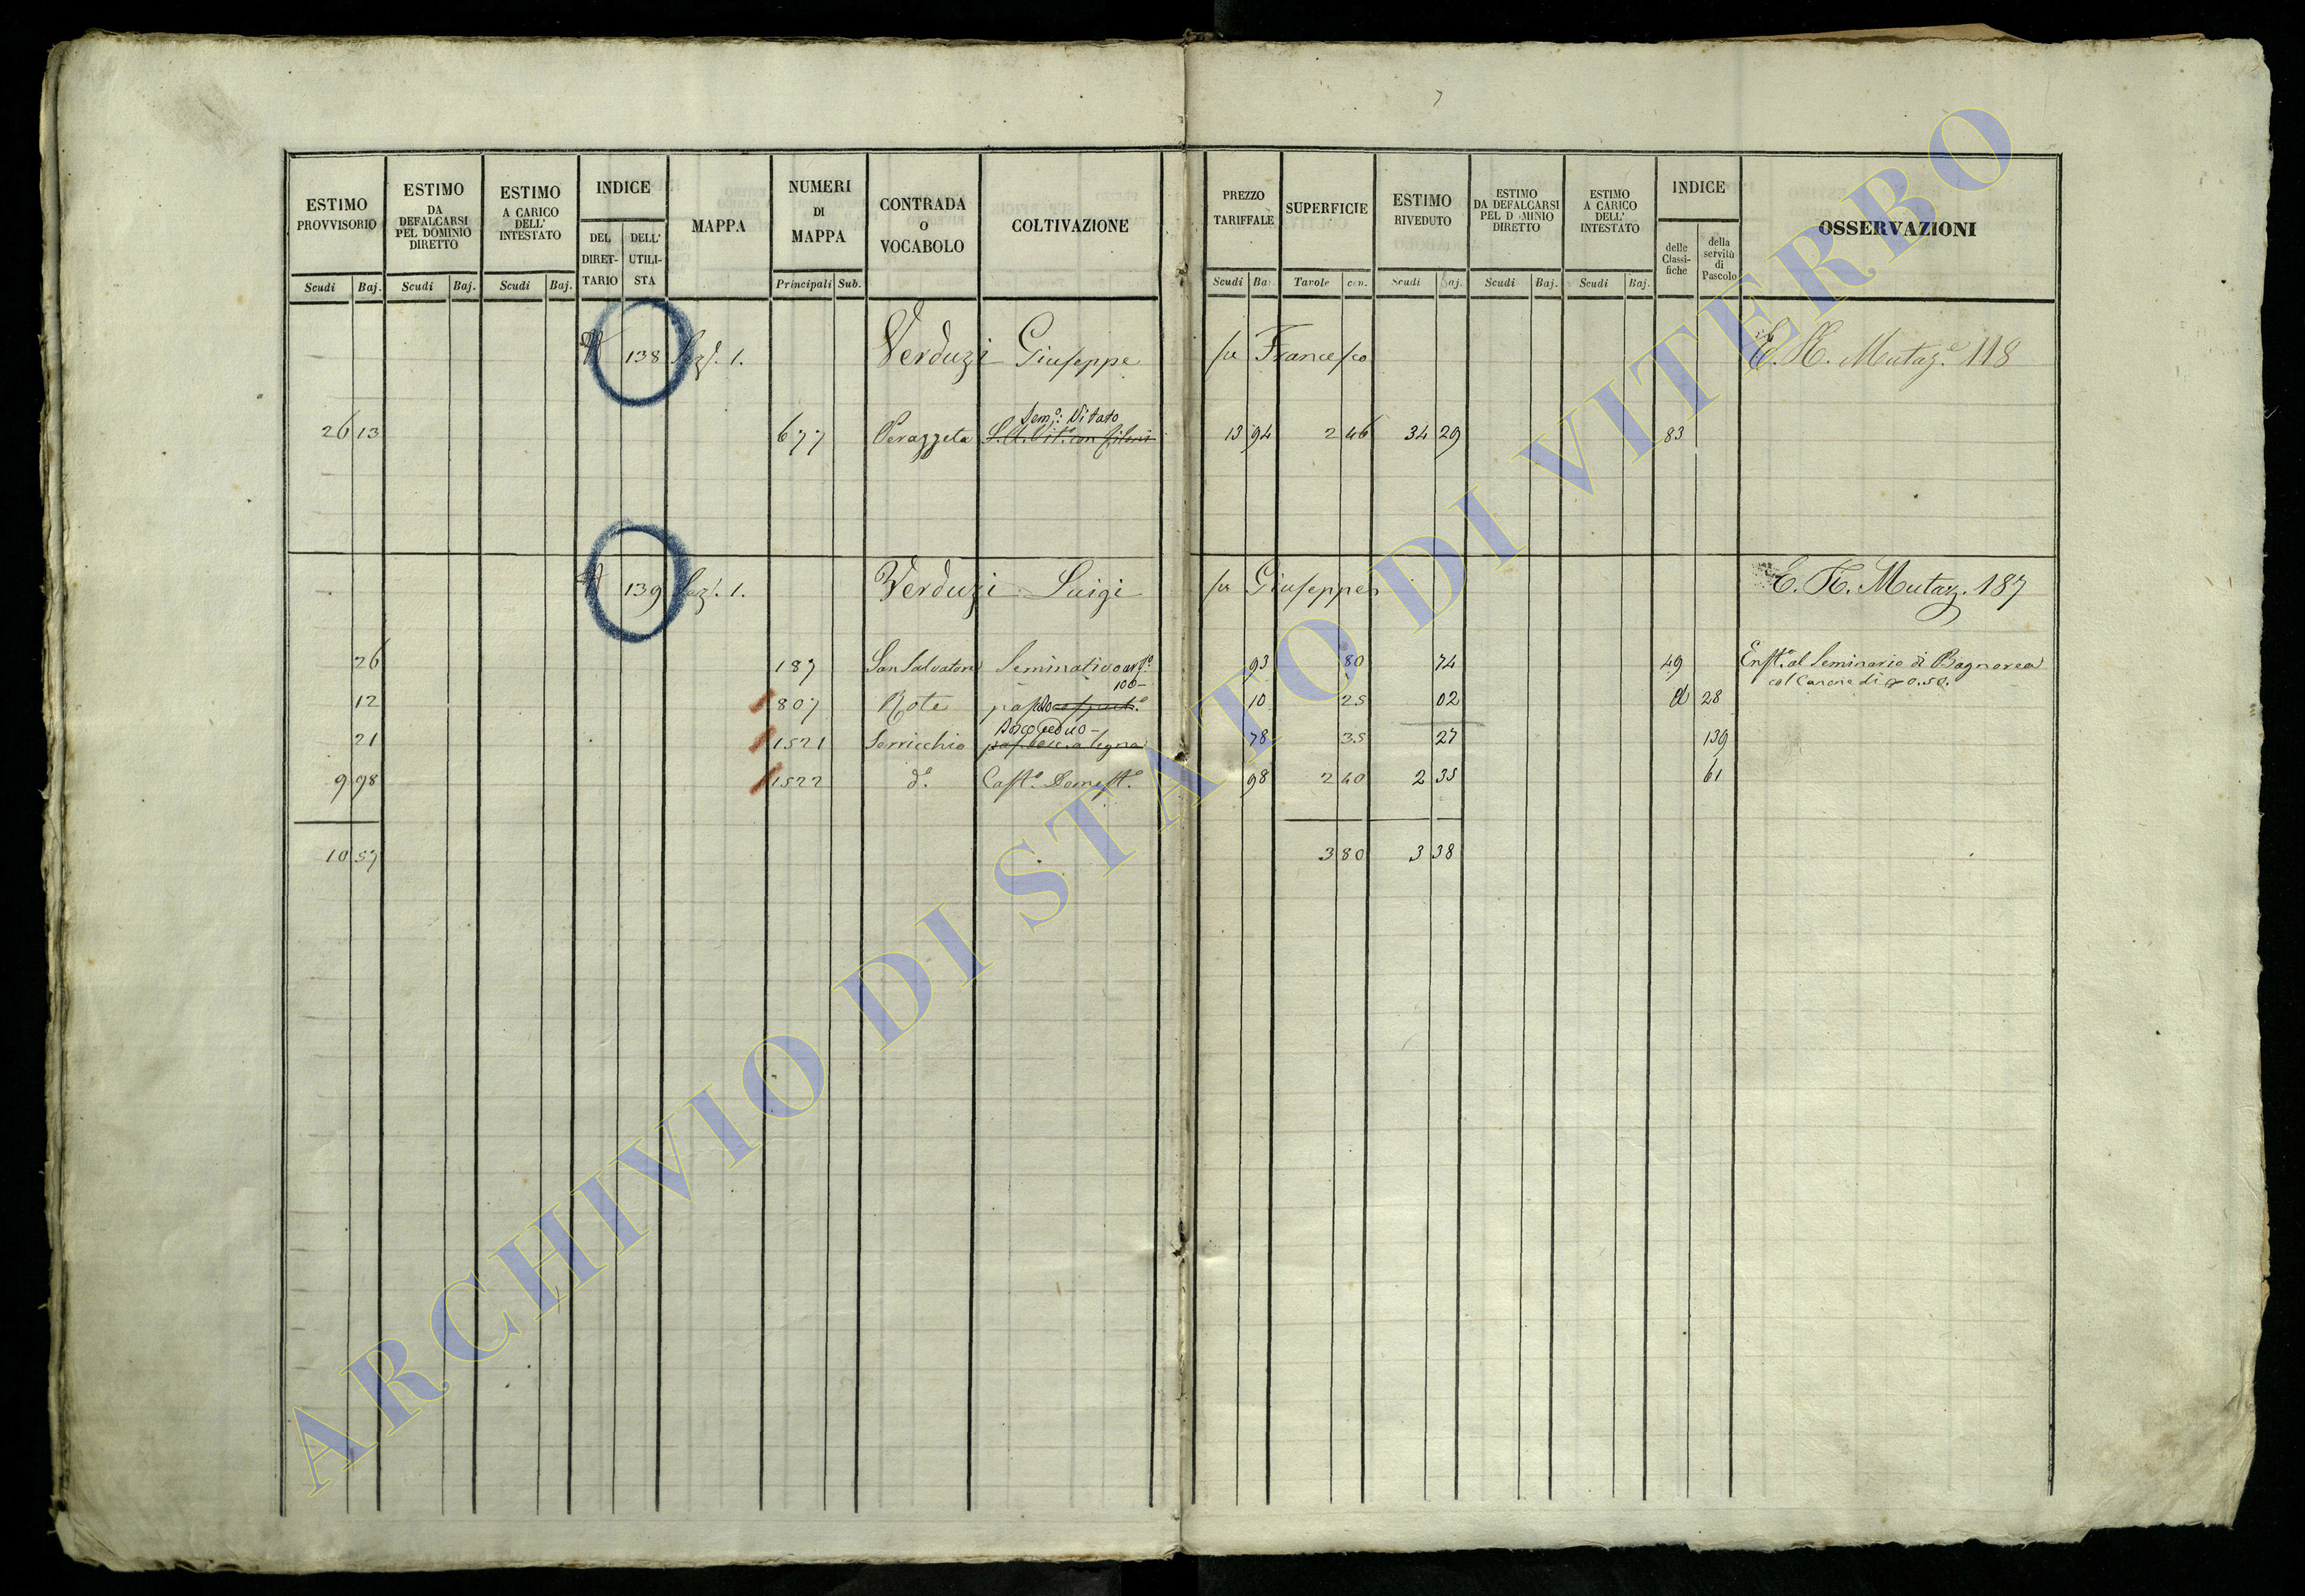 ESTIMO PROVVISORIO
ESTIMO DA DEFALCARSI PEL DOMINIO DIRETTO
ESTIMO A CARICO DELL' INTESTATO
INDICE
DEL DIRET-TARIO
DELL' UTILI-STA
MAPPA
NUMERI DI MAPPA
CONTRADA O VOCABOLO
COLTIVAZIONE
PREZZO TARIFFALE
SUPERFICIE
ESTIMO RIVEDUTO
ESTIMO DA DEFALCARSI PEL D MINIO DIRETTO
ESTIMO A CARICO DELL' INTESTATO
INDICE
delle Classi-fiche
della servitù di Pascolo
OSSERVAZIONI
Scudi Baj. Scudi Baj. Scudi Baj. Principali Sub. Scudi Ba. Tavole cen. Scudi Baj. Scudi Baj. Scudi Baj.
138 1. Verduzi Giuseppe Francesco Mutaz.e 118
Sem.o: Vitato
26 13 677 Perazzeta 13 94 2 46 34 29 83
139 1. Verduzi Luigi Giuseppe Mutaz. 187
26 187 San Salvatore Seminativo 93 80 74 49 Enft.o al Seminario di Bagnorea
col Canone di 0.50.
12 807 Rote 10 25 02 28
Bosco Ceduo
21 1521 Serricchio 78 35 27 139
9 98 1522 d.o Cast.o Domest.o 98 2 40 2 35 61
10 57 3 80 3 38
ARCHIVIO DI STATO DI VITERBO